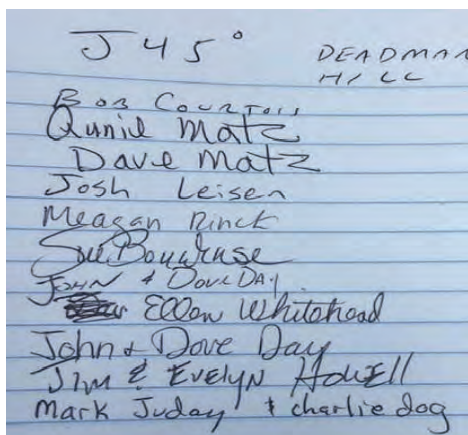 J 45°
DEADMAN HILL
Bob Courtois
Qunie Matz
Dave Matz
Josh Leisen
Meagan Rinck
Sue
John & Dove Day
Ellen Whitehead
John & Dove Day
Jim & Evelyn Howell
Mark Juday & charlie dog